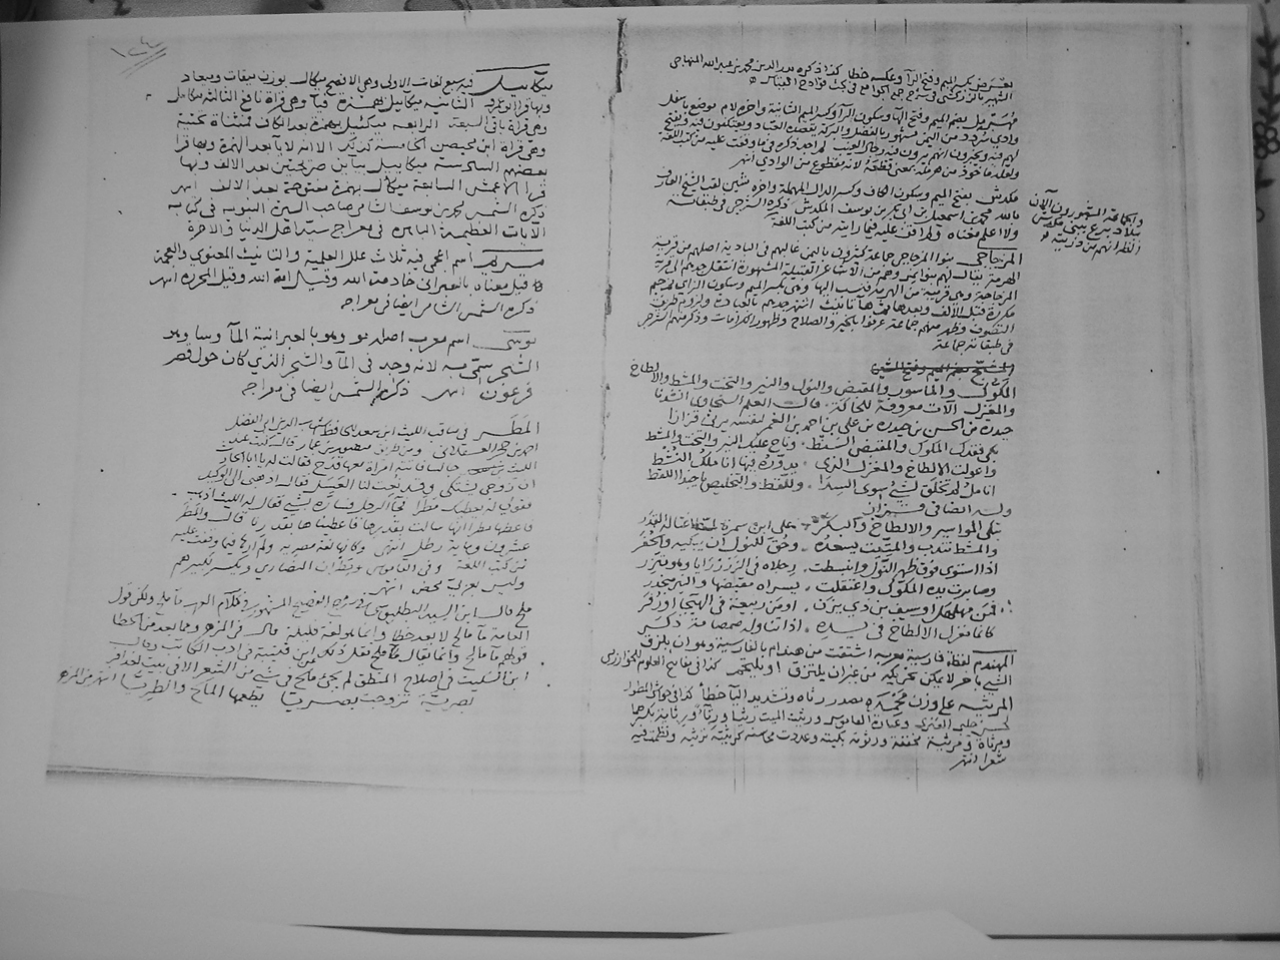 بكسر الميم وفتح الرآ وعكسه خطا كذا ذكره بدر الدين محمد بن عبد الله المنهاجي
الشهير بالزركشي في
بضم الميم وفتح الها وسكون الرآ وكسر الميم الثانية واخره لام موضع باسفل
وادي سردد من اليمن مشهور بالفضل والبركة يقصده العباد ويعتكفون فيه ويفتح
لهم فيه ويخبرون انهم يرون فيه رجال الغيب لم اجد ذكره فيما وقفت عليه من كتب اللغة
ولعله ماخوذ من هرمله بمعنى قطعه لانه مقطوع من الوادي انتهى
مكدش بفتح الميم وسكون الكاف وكسر الدال المهملة واخره شين لقب الشيخ العارف
بالله محمد بن اسمعيل بن ابي بكر بن يوسف المكدش ذكره الشرجي في طبقاته
ولا اعلم معناه ولم اقف عليه فيما رايته من كتب اللغة
المزجاجي بنوا المزجاجي جماعة كثيرون باليمن غالبهم في البادية اصلهم من قرية
الهرمة يقال لهم بنوا
المزجاجة وهي قرية من فنسب اليها وهي بكسر الميم وسكون الزاي ثم جيم
مكررة قبل الالف وبعدها ثم ها تانيث اشتهر جدهم بالعبادة ولزوم طريق
التصوف وظهر منهم جماعة عرفوا بالخير والصلاح وظهور الكرامات وذكر منهم الشرجي
في طبقاته جماعة
المكوك والماسور والمقبض والنول والنير والتخت والمشط والالطاخ
والمغزل الات معروفة للحاكة قال العلم السخاوي انشدنا
حيدرة بن الحسن بن حيدرة بن علي بن احمد بن الغمر لنفسه يرثي قزازا
بكى فقدك المكوك والمقبض السنط وناح عليك النير والتخت والمشط
واعولت الالطاخ والمغزل الذي يدوره فيها انا ملك النشط
انا مل لم تخلق لشيء سوى السدا وللقط والتخليص يا حبذا اللقط
وله ايضا في قزاز
بكى المواسير والالطاخ والبكر على ابن سمرة لما غاله القدر
والمشط تندب والميت يسعده وحق للنول ان يبكيه والحفر
اذا استوى فوق ظهر النول وانبسطت رجلاه في الزرزرايا وهو متزر
وصابرت يده المكوك واعتقلت يسراه مقبضها والنير ينحدر
فمن مهلهل او سيف بن ذي يزن او من ربيعة في الهيجا او زفر
كانما مغزل الالطاخ في يده اذا تناوله صمصامة ذكر
المهندم لفظة فارسية معربه اشتقت من هندام بالفارسية وهو ان يلزق
الشيء باخر لا يمكن تحريكه من غير ان يلتزق او يلتحم كذا في مفاتيح العلوم للخوارزمي
المرثيه على وزن محمده مصدر رثاه وتشديد اليآ خطأ كذا في حواشي المطول
لحسن جلبي الفنري وعبارة القاموس ورثيت الميت رثيا ورثاء ورثاية بكسرهما
ومرثاة ومرثية مخففة ورثوته بكيته وعددت محاسنه كرثيته ترثيه ونظمت فيه
شعرا انتهى
والجماعة المشهورون الآن
ببلاد بني مكدش
الظاهر انهم من ذريته
ميكاييل فيه سبع لغات الاولى وهي الافصح ميكال بوزن ميقات وميعاد
وبها قرا ابو عمرو الثانية ميكاييل بهمزة وهي قراة نافع الثالثة ميكاييل
وهي قراة باقي السبعة الرابعة ميكئيل بهمزة بعد الكاف
وهي قراة ابن محيصن الخامسة كذلك الا انه لا يآ بعد الهمزة وبها قرا
بعضهم السادسة ميكاييل بيآين صريحتين بعد الالف وبها
قرا الاعمش السابعة ميكاءل بهمزة مفتوحة بعد الالف انتهى
ذكره الشمس محمد بن يوسف الشامي صاحب السيرة النبوية في كتابه
الآيات العظيمة الباهرة في معراج سيد اهل الدنيا والاخرة
مريم اسم اعجمي فيه ثلاث علل العلمية والتانيث المعنوي والعجمة
قيل معناه بالعبراني خادمة الله وقيل امة الله وقيل المحررة انتهى
ذكره الشمس الشامي ايضا في معراجه
موسى اسم معرب اصله مو وهو بالعبرانية المآ وسا وهو
الشجر سمي به لانه وجد في المآ والشجر الذي كان حول قصر
فرعون انتهى ذكره الشمس ايضا في معراجه
المطر في مناقب الليث ابن سعد للحافظ شهاب الدين ابي الفضل
احمد بن حجر العسقلاني ومن طريق منصور بن عمار قال كنت عند
الليث جالسا فاتته امراة معها قدح فقالت له يا ابا الحارث
ان زوجي يشتكي وقد نعت لنا العسل فقال اذهبي الى الوكيل
فقولي له يعطيك مطرا فجآ الوكيل فساره بشيء فقال له الليث اذهب
فاعطها مطرا انها سالت بقدرها فاعطيناها بقدرنا قال والمطر
عشرون ومائة رطل انتهى وكانها لغة مصرية ولم ارها فيما وقفت عليه
من كتب اللغة وفي القاموس ومطران النصارى ويكسر لكبيرهم
وليس بعربي محض انتهى
ملح قال ابن السيد البطليوسي في شرح الفصيح المشهور في كلام العرب مآ ملح ولكن قول
العامة مآ مالح لا يعد خطا وانما هو لغة قليلة قال في المزهر ومما يعد من الخطا
قولهم مآ مالح وانما يقال مآ ملح نقل ذلك ابن قتيبة في ادب الكاتب وقال
ابن السكيت في اصلاح المنطق لم يجئ مالح في شيء من الشعر الا في بيت لعذافر
بصرية تزوجت بصريا يطعمها المالح والطريا انتهى من المزهر